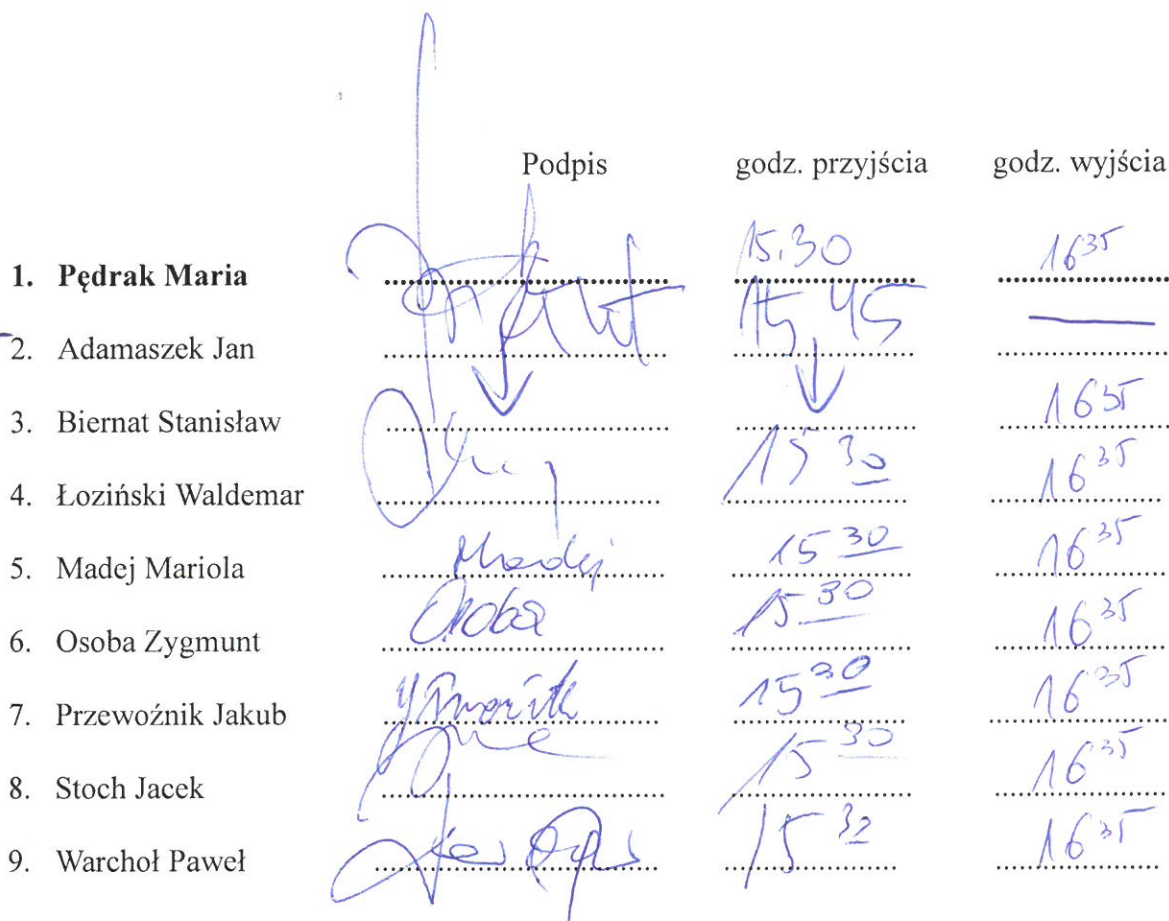 Podpis godz. przyjścia godz. wyjścia
1. Pędrak Maria 15.30 16 35
2. Adamaszek Jan 15,45
3. Biernat Stanisław 16 35
4. Łoziński Waldemar 15 30 16 35
5. Madej Mariola Madej 15 30 16 35
6. Osoba Zygmunt Osoba 15 30 16 35
7. Przewoźnik Jakub 15 30 16 35
8. Stoch Jacek 15 30 16 35
9. Warchoł Paweł 15 32 16 35